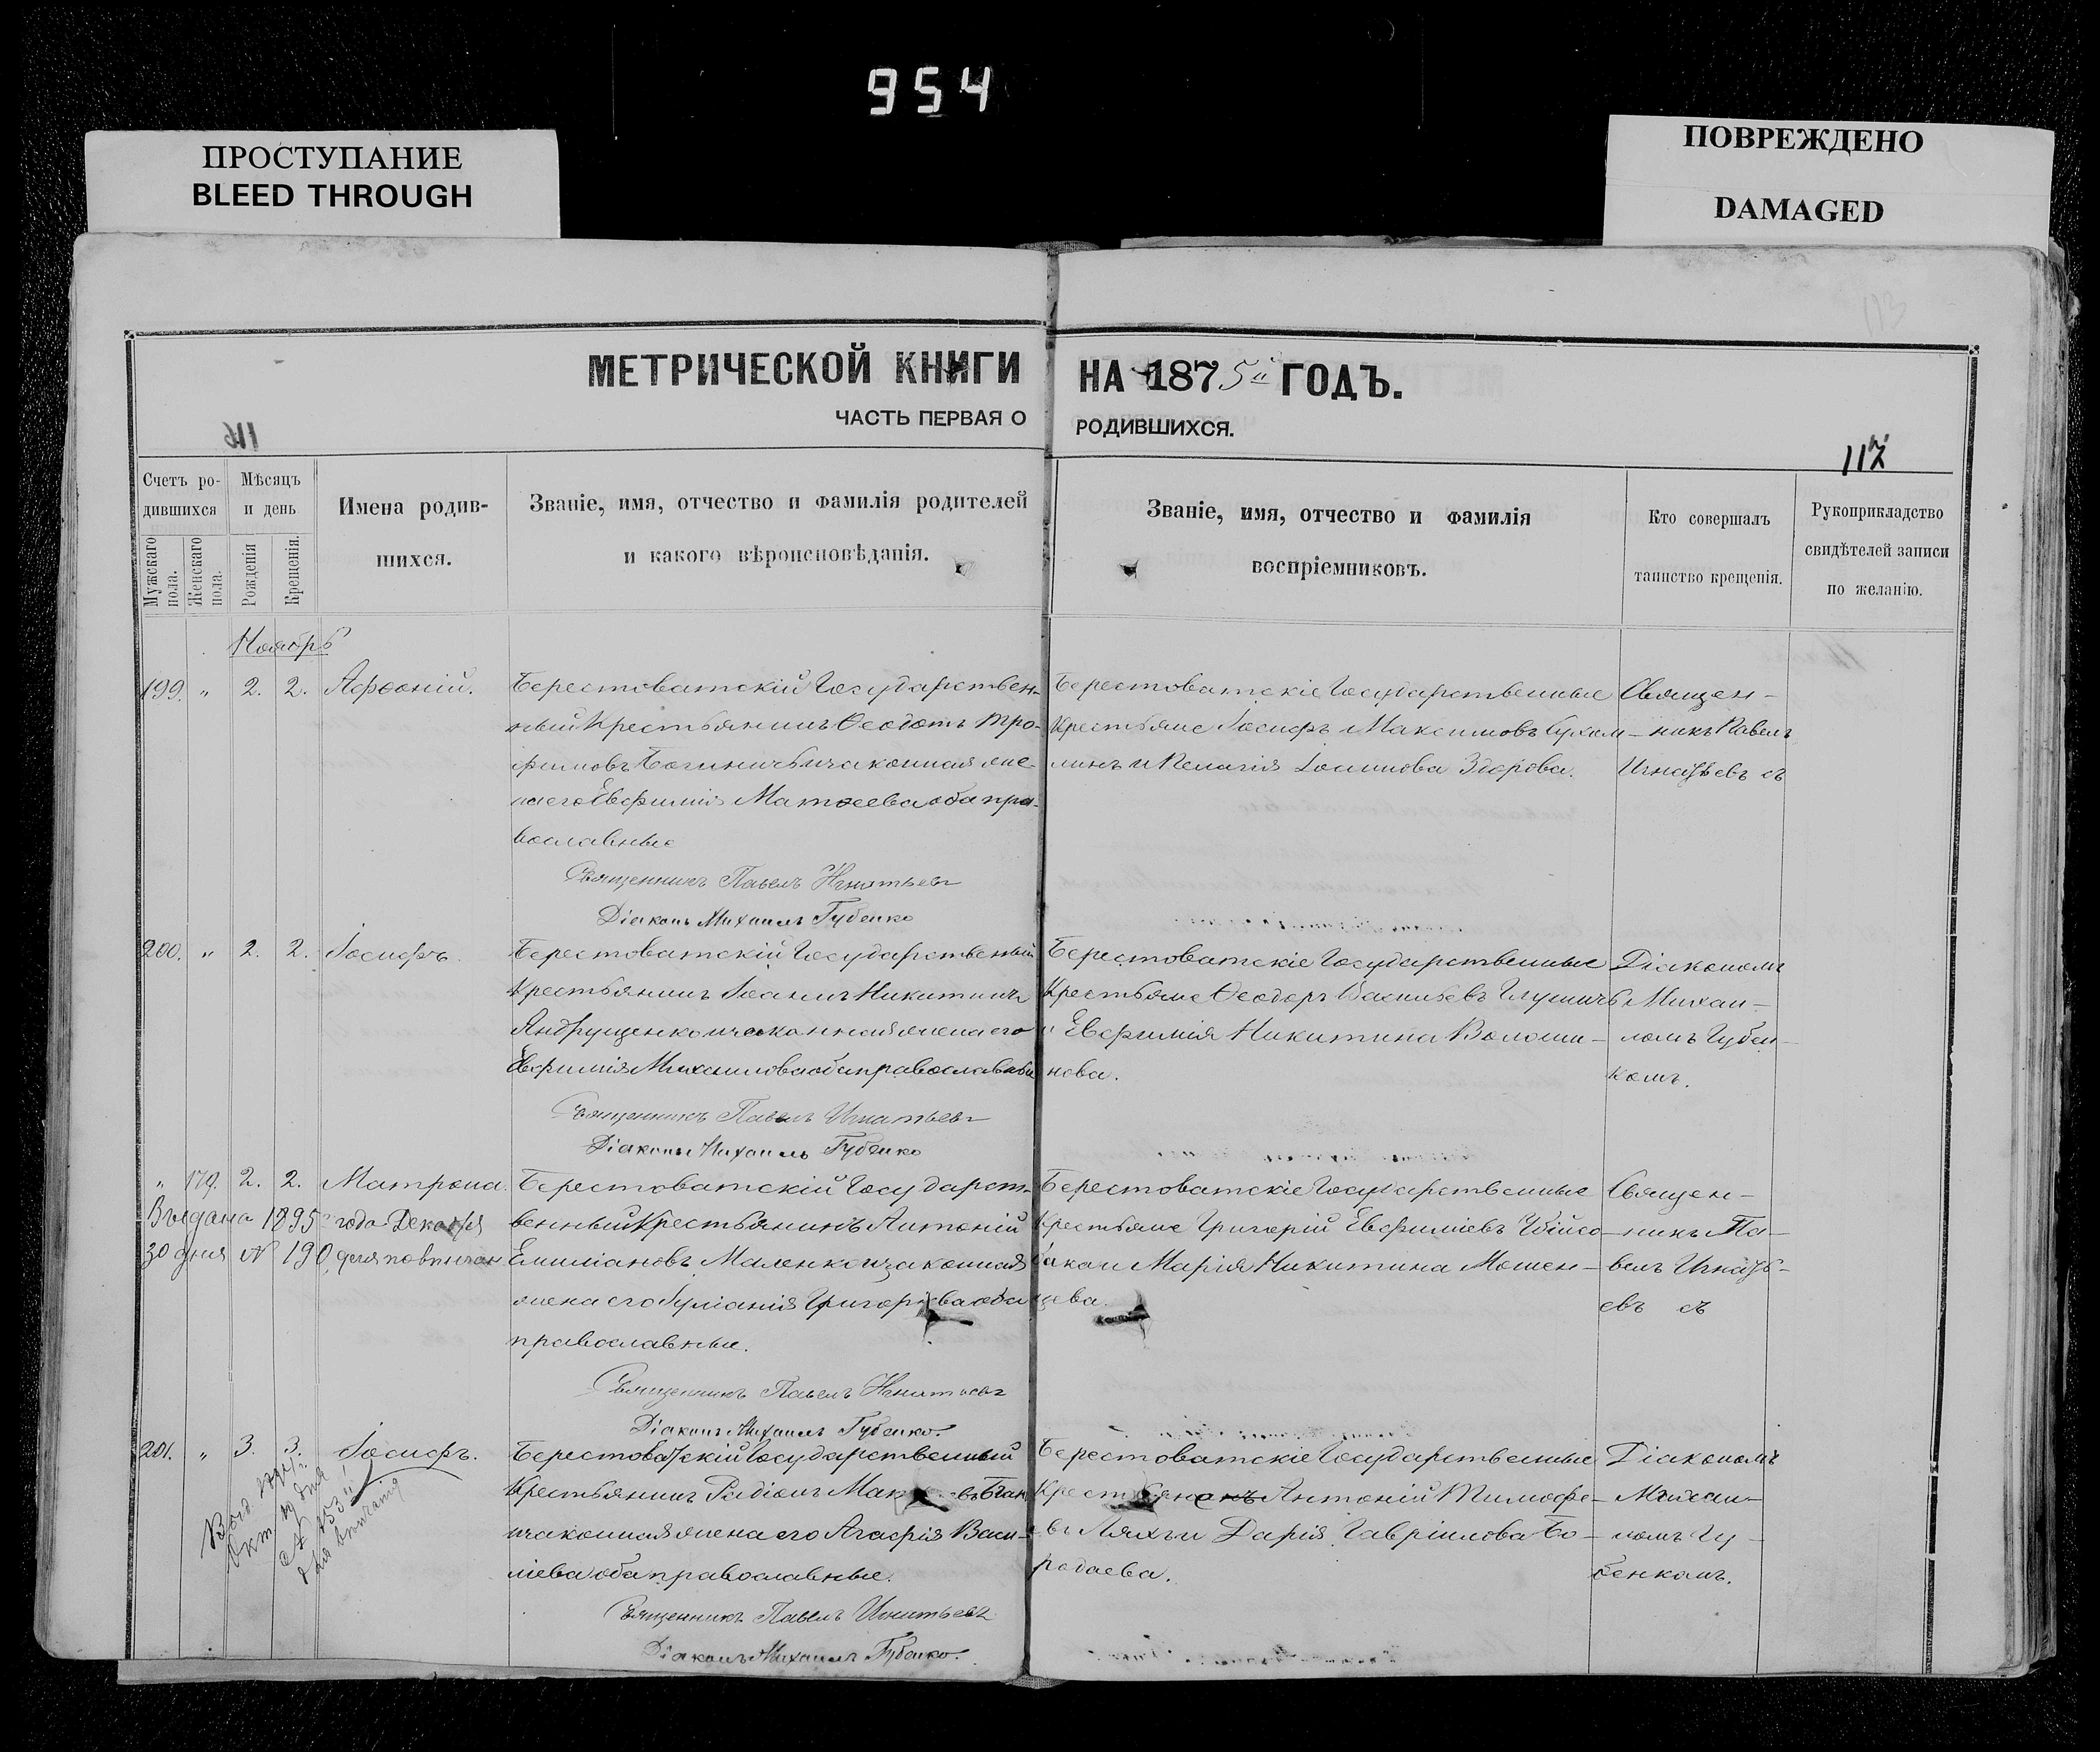 954
ПРОСТУПАНИЕ
BLEED THROUGH
ПОВРЕЖДЕНО
DAMAGED
МЕТРИЧЕСКОЙ КНИГИ НА 1875й ГОДЪ.
ЧАСТЬ ПЕРВАЯ О РОДИВШИХСЯ.
117
Счетъ ро-
дившихся
Мужскаго пола.
Женскаго пола.
Мѣсяцъ
и день
Рожденія
Крещенія.
Имена родив-
шихся.
Званіе, имя, отчество и фамилія родителей
и какого вѣроисповѣданія.
Званіе, имя, отчество и фамилія
воспріемниковъ.
Кто совершалъ
таинство крещенія.
Рукоприкладство
свидѣтелей записи
по желанію.
Ноябрь
199. " 2. 2. Афѳоній.
Берестоватскій Государствен-
ный Крестьянинъ Ѳеодотъ Тро-
фимовъ и законная же-
на его Евфимія Матѳеева оба пра-
вославные
Священникъ Павелъ Игнатьевъ
Діаконъ Михаилъ Губенко
Берестоватскіе Государственные
Крестьяне Іосифъ Максимовъ Сухом-
линъ и Пелагія Іоаннова Здорова.
Священ-
никъ Павелъ
Игнатьевъ съ
200. " 2. 2. Іосифъ.
Берестоватскій Государственный
Крестьянинъ Іоаннъ Никитинъ
Андрущенко и законная жена его
Евфимія Михаилова оба православные
Священникъ Павелъ Игнатьевъ
Діаконъ Михаилъ Губенко
Берестоватскіе Государственные
Крестьяне Ѳеодоръ Васильевъ
и Евфимія Никитина Волоши-
нова.
Діакономъ
Михаи-
ломъ Губен-
комъ.
" 179. 2. 2. Матрона.
Выдана 1895 года Декабря
30 дня № 190 для повѣнчан
Берестоватскій Государст-
венный Крестьянинъ Антоній
Емиліановъ Маленко и законная
жена его Іуліанія Григорьева оба
православные.
Священникъ Павелъ Игнатьевъ
Діаконъ Михаилъ Губенко.
Берестоватскіе Государственные
Крестьяне Григорій Евфиміевъ Убійсо-
бака и Марія Никитина Мошен-
цева.
Священ-
никъ Па-
велъ Игнать-
евъ съ
201. " 3. 3. Іосифъ.
окт. 19 дня
№ 153
для
Берестоватскій Государственный
Крестьянинъ Радіонъ
и законная жена его Агафія Васи-
ліева оба православные.
Священникъ Павелъ Игнатьевъ
Діаконъ Михаилъ Губенко.
Берестоватскіе Государственные
Антоній Тимофе-
евъ Ляхъ и Дарія Гавріилова Бо-
родаева.
Діакономъ
Михаи-
ломъ Гу-
бенкомъ.